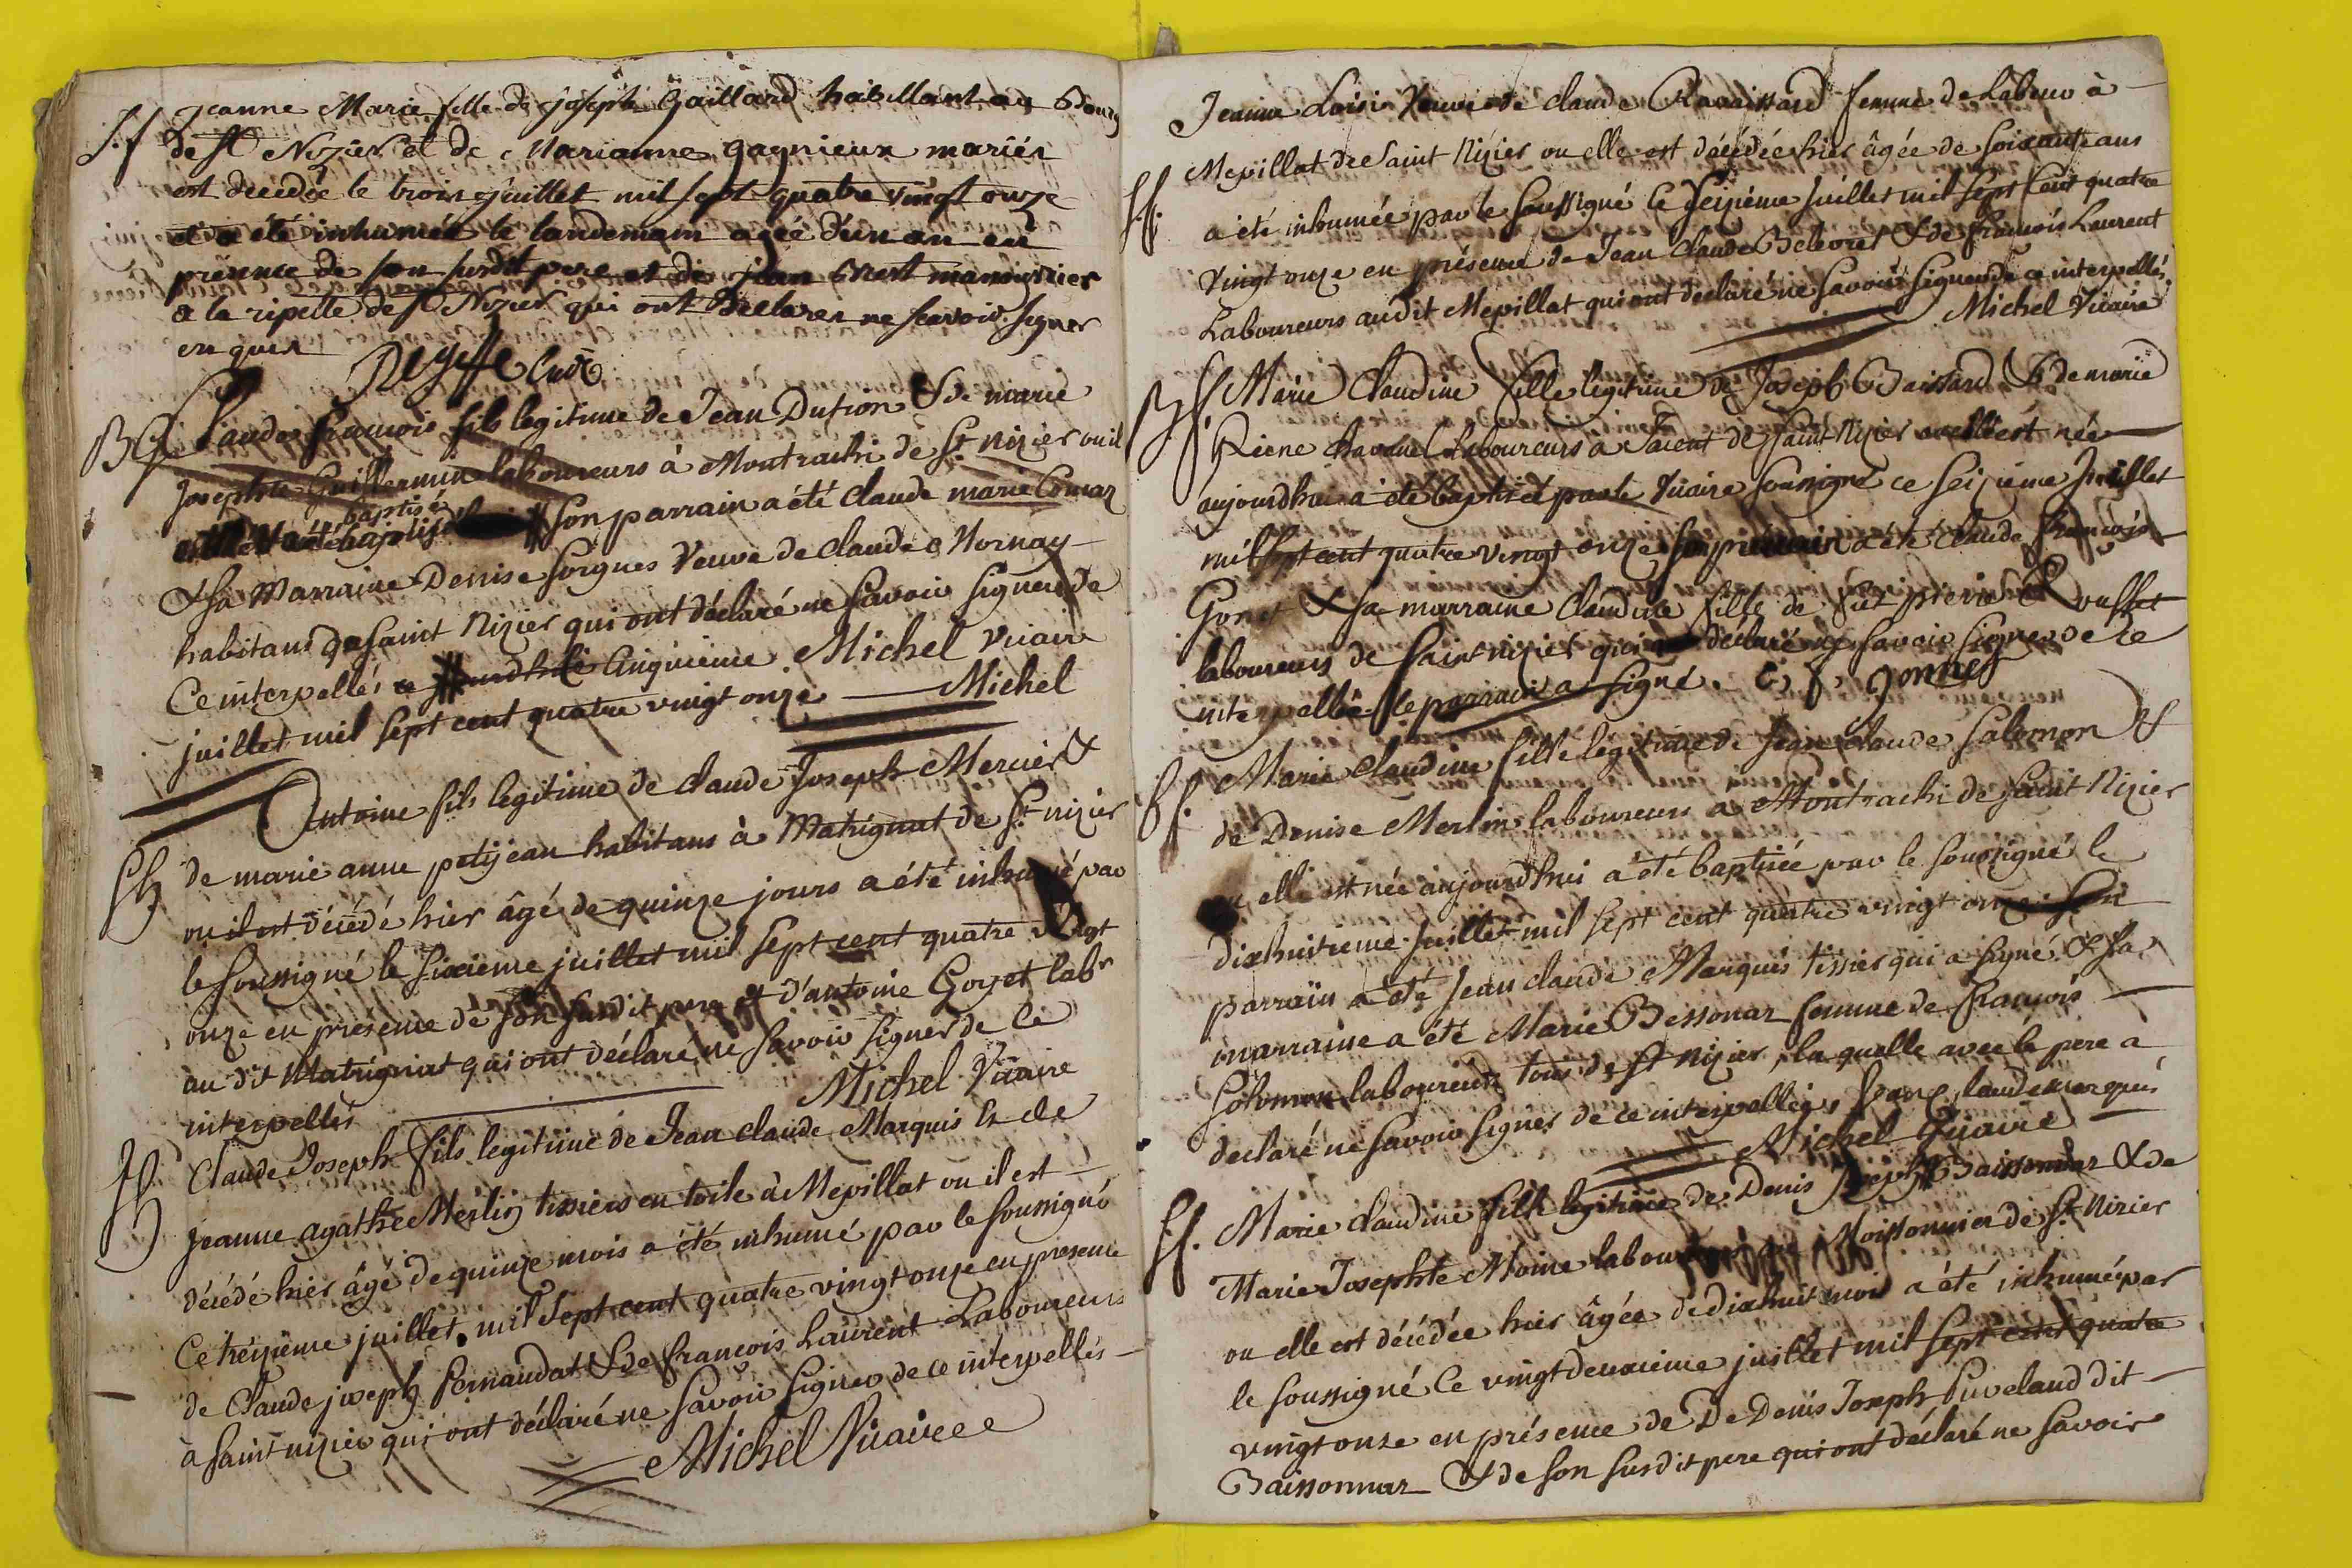 Jeanne Marie fille de joseph Gaillard habittant au Bourg
de St Nizier et de Marianne gagnieux mariés
est decedée le trois juillet mil sept quatre vingt onze
et a été inhumée le landemain agéé d'un an en
présence de son susdit pere et de jean manouvrier
a la ripette de St Nizier qui ont declarer ne scavoir signer
enquis
Reyffe curé
Claude francois fils legitime de Jean Dution & de marie
Josephte Guillermin laboureurs à Montrachi de St Nizier ou il
baptisé
son parrain a été claude marie Comar
& sa marraine Denise sorgues veuve de claude Mornay
habitans de saint Nizier qui ont déclaré ne savoir signer de
ce interpellés cinquieme Michel vicaire
juillet mil sept cent quatre vingt onze Michel
Antoine fils legitime de claude Joseph Mercier &
de marie anne petijean habitans à Matrignat de St nizier
ou il est décédé hier âgé de quinze jours a été inhumé par
le soussigné le sixieme juillet mil sept cent quatre vingt
onze en présence de son susdit pere & d'antoine Goyet labr
au dit Matrignat qui ont déclaré ne savoir signer de ce
interpellés Michel Vicaire
Claude Joseph fils legitime de Jean claude Marquis & de
jeanne agathe Merlin tissiers en toile à Mepillat ou il est
décédé hier âgé de quinze mois a été inhumé par le soussigné
Ce treizième juillet mil sept cent quatre vingt onze en presence
de Claude joseph fernaudat & de francois Laurent Laboureurs
à saint nizier qui ont déclaré ne savoir signer de ce interpellés
Michel Vicaire
Jeanne Loisi Veuve de claude Ravaissard femme de Labeur à
Mepillat de Saint Nizier ou elle est décédée hier âgée de soixante ans
a été inhumée par le soussigné le seizième juillet mil sept cent quatre
vingt onze en présence de Jean claude Beloret & de francois Laurent
Laboureurs audit Mepillat qui ont declaré ne savoir signer de ce interpellés
Michel Vicaire
Marie Claudine fille legitime de Joseph Baissard & de marie
Riene chavanel laboureurs a Tarent de Saint Nizier ou elle est née
aujourdhui a été baptisée par le Vicaire soussigné ce seizieme Juillet
mil sept cent quatre vingt onze son parrain a été claude francois
Gonet & sa marraine claudine fille de Roussel
laboureurs de Saint nizier qui a déclaré ne savoir signer de ce
interpellée le parrain a signé. C. f. gonnet
Marie claudine fille legitime de Jean claude Salomon &
de Denise Merlin laboureurs a Montrachi de Saint Nizier
ou elle est née aujourdhui a été baptisée par le soussigné le
dixhuitieme juillet mil sept cent quatre vingt onze son
parrain a été Jean claude Marquis tissier qui a signé & sa
marraine a été Marie Bessonar femme de francois
Solomon laboureurs tous de St Nizier, la quelle avec le pere a
declaré ne savoir signer de ce interpellés, jeanclaudemarquis
Michel Vicaire
Marie claudine fille legitime de Denis Joseph Baissonnar & de
Marie Josephte Moine Moissonnier de St Nizier
ou elle est décédée hier âgée de dixhuit mois a été inhumé par
le soussigné Ce vingt deuxieme juillet mil sept cent quatre
vingt onze en présence de De Denis Joseph Puveland dit
Baissonnar & de son susdit pere qui ont déclaré ne savoir